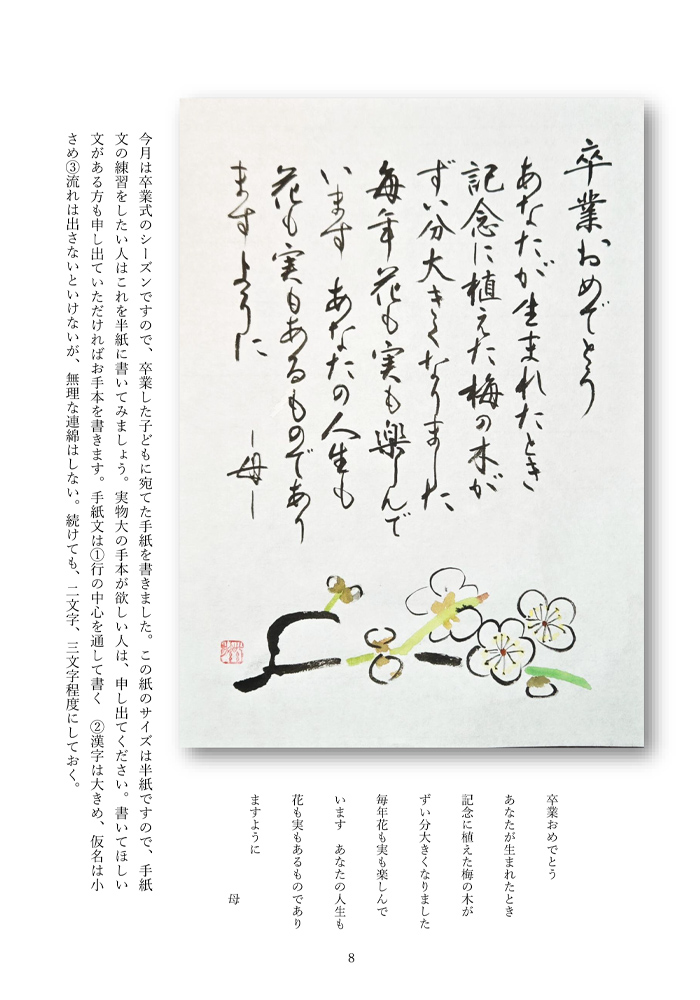 卒業おめでとう
あなたが生まれたとき
記念に植えた梅の木が
ずい分大きくなりました
毎年花も実も楽しんで
います あなたの人生も
花も実もあるものであり
ますように
―母―
卒業おめでとう
あなたが生まれたとき
記念に植えた梅の木が
ずい分大きくなりました
毎年花も実も楽しんで
います あなたの人生も
花も実もあるものであり
ますように
母
今月は卒業式のシーズンですので、卒業した子どもに宛てた手紙を書きました。この紙のサイズは半紙ですので、手紙
文の練習をしたい人はこれを半紙に書いてみましょう。実物大の手本が欲しい人は、申し出てください。書いてほしい
文がある方も申し出ていただければお手本を書きます。手紙文は①行の中心を通して書く ②漢字は大きめ、仮名は小
さめ③流れは出さないといけないが、無理な連綿はしない。続けても、二文字、三文字程度にしておく。
8